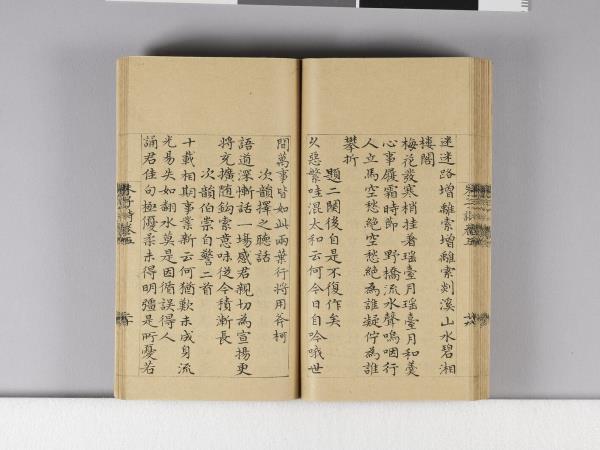 迷迷路增離索增離索剡溪山水碧湘
樓閣
梅花發寒梢挂著瑶臺月瑶臺月和羹
心事履霜時節 野橋流水聲嗚咽行
人立馬空愁絶空愁絶為誰凝佇為誰
攀折
題二闋後自是不復作矣
久惡繁哇混太和云何今日自吟哦世
間萬事皆如此兩葉行將用斧柯
次韻擇之聽話
語道深慚話一塲感君親切為宣揚更
將充擴随鈎索意味従今積漸長
次韻伯崇自警二首
十載相期事業新云何猶歎未成身流
光易失如翻水莫是因循誤得人
誦君佳句極優柔未得明彊是所憂若